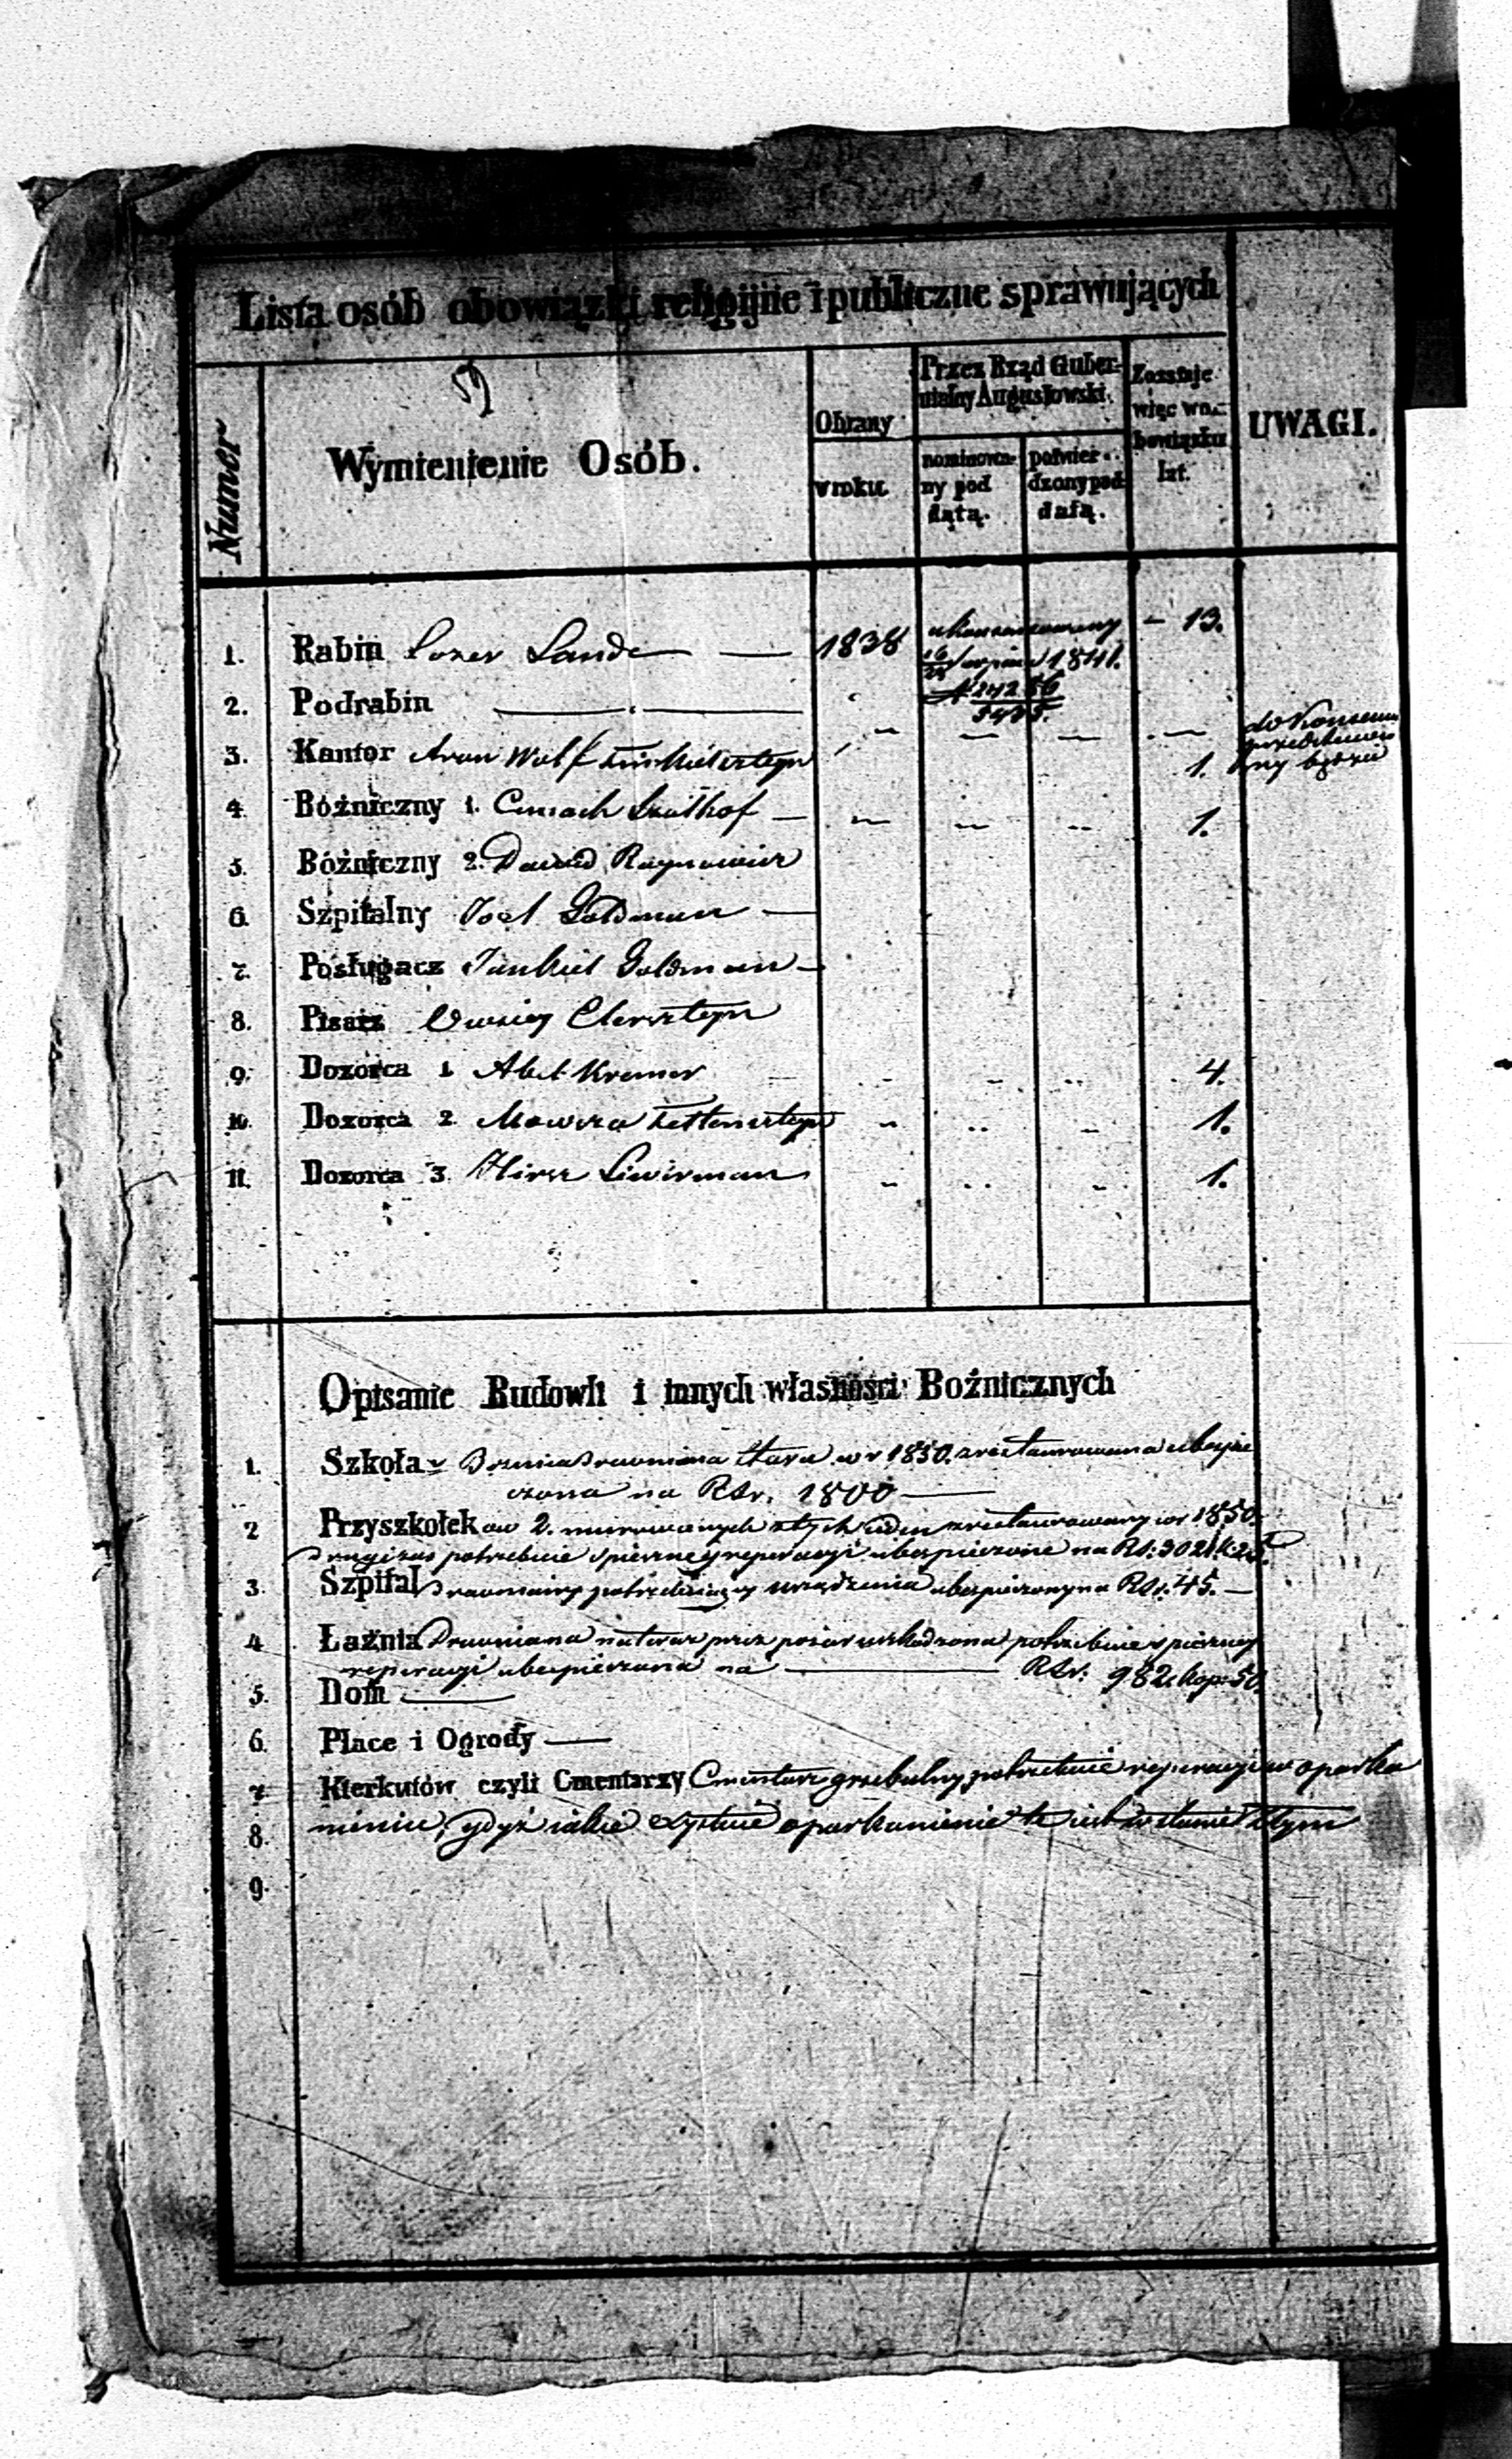 Lista osób obowiązki religijne i publiczne sprawujących
Numer
Wymienienie Osób.
Obrany w roku.
Przez Rząd Gubernialny Augustowski.
nominowany pod datą.
potwierdzony pod datą.
Zostaje więc w obowiązku lat.
UWAGI.
1. Rabin Lozer Lande — 1838 — 13.
16/28 Sierpnia 1841.
N 24256
2. Podrabin —
3. Kantor Aron Wolf — — — — 1. do przedstawiony będzie
4. Bóżniczny 1. — — — 1.
5. Bóżniczny 2. Dawid
6. Szpitalny Josel Goldman —
7. Posługacz Jankiel Goldman —
8. Pisarz
9. Dozorca 1 Abel Kremer — — — 4.
10. Dozorca 2 Mowsza — — — 1.
11. Dozorca 3. Hirsz Liwerman — — — 1.
Opisanie Budowli i innych własności Bożnicznych
1. Szkoła Bożnica drewniana stara w r 1850. zrestaurowana ubezpie
czona na RSr. 1800 —
2 Przyszkołek ow 2. murowanych z tych jeden zrestaurowany w r 1850.
drugi zas potrzebuie spieszney reperacyi ubezpieczone na RS. 3021 k. 25.
3. Szpital drewniany potrzebuiący urządzenia ubezpieczony na RSr. 45. —
4. Łaźnia drewniana na teraz przez pożar uszkodzona potrzebuie spieszney
reperacyi ubezpieczona na — RSr. 982 kop. 50.
5. Dom —
6. Place i Ogrody —
7 Kierkutów czyli Cmentarzy Cmentarz grzebalny potrzebuie reperacyi w oparka
8. nieniu, gdyż oparkanienie te iest w stanie złym
9.